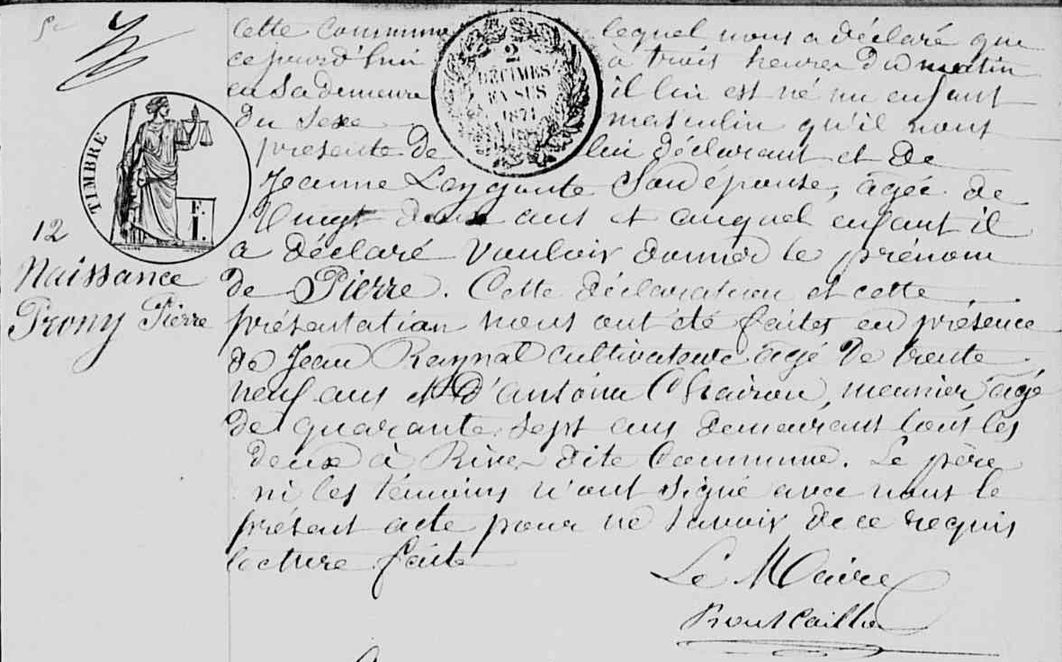 cette commune lequel nous a déclaré que
ce jourd'hui à trois heures du matin
en sa demeure il lui est né un enfant
du sexe masculin qu'il nous
présente de lui déclarant et de
Jeanne son épouse, agée de
vingt deux ans et auquel enfant il
a déclaré vouloir donner le prénom
de Pierre. Cette déclaration et cette
présentation nous ont été faites en présence
de Jean Raynal cultivateur agé de trente
neuf ans et d'antoine meunier agé
de quarante sept ans demeurant tous les
deux à dite Commune. Le père
ni les témoins n'ont signé avec nous le
présent acte pour ne savoir de ce requis
lecture faite
Le Maire
2
DÉCIMES
EN SUS
1871
TIMBRE
F.
1.
12
Naissance
Prony Pierre